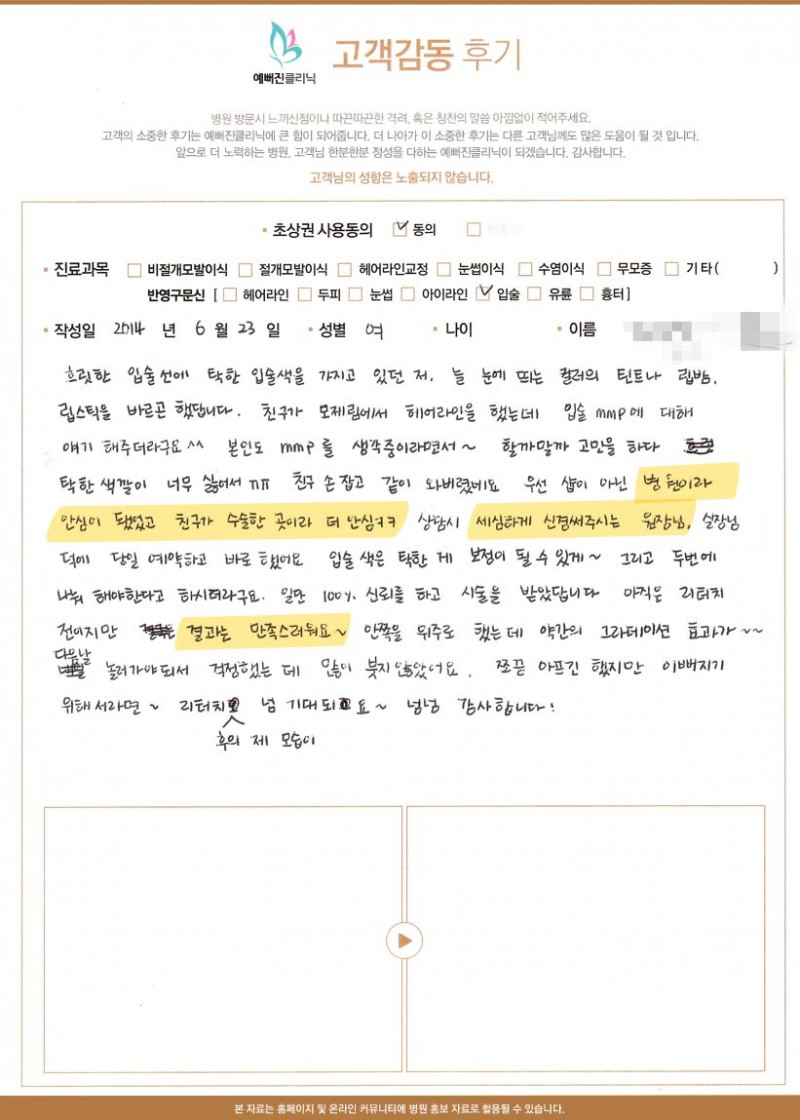 예뻐진클리닉 고객감동 후기
병원 방문시 느끼신점이나 따끈따끈한 격려, 혹은 칭찬의 말씀 아낌없이 적어주세요.
고객의 소중한 후기는 예뻐진클리닉에 큰 힘이 되어줍니다. 더 나아가 이 소중한 후기는 다른 고객님께도 많은 도움이 될 것 입니다.
앞으로 더 노력하는 병원, 고객님 한분한분 정성을 다하는 예뻐진클리닉이 되겠습니다. 감사합니다.
고객님의 성함은 노출되지 않습니다.
초상권 사용동의 동의
진료과목 비절개모발이식 절개모발이식 헤어라인교정 눈썹이식 수염이식 무모증 기타( )
반영구문신 [ 헤어라인 두피 눈썹 아이라인 입술 유륜 흉터 ]
작성일 2014 년 6 월 23 일 성별 여 나이 이름
흐릿한 입술선에 탁한 입술색을 가지고 있던 저. 늘 눈에 띄는 컬러의 틴트나 립밤,
립스틱을 바르곤 했답니다. 친구가 모제림에서 헤어라인을 했는데 입술 mmp에 대해
얘기 해주더라구요^^ 본인도 mmp를 생각중이라면서~ 할까말까 고민을 하다
탁한 색깔이 너무 싫어서 ㅠㅠ 친구 손잡고 같이 와버렸네요 우선 샵이 아닌 병원이라
안심이 됐었고 친구가 수술한 곳이라 더 안심ㅋㅋ 상담시 세심하게 신경써주시는 원장님, 실장님
덕에 당일 예약하고 바로 했어요 입술 색은 탁한 제 보정이 될 수 있게~ 그리고 두번에
나눠 해야한다고 하시더라구요. 일단 100% 신뢰를 하고 시술을 받았답니다 아직은 리터치
전이지만 결과는 만족스러워요~ 안쪽을 위주로 했는데 약간의 그라데이션 효과가~~
다음날 놀러가야되서 걱정했는데 많이 붓지 않았어요. 쪼끔 아프긴 했지만 이뻐지기
위해서라면~ 리터치 후의 제 모습이 넘 기대되요~ 넘넘 감사합니다!
본 자료는 홈페이지 및 온라인 커뮤니티에 병원 홍보 자료로 활용될 수 있습니다.